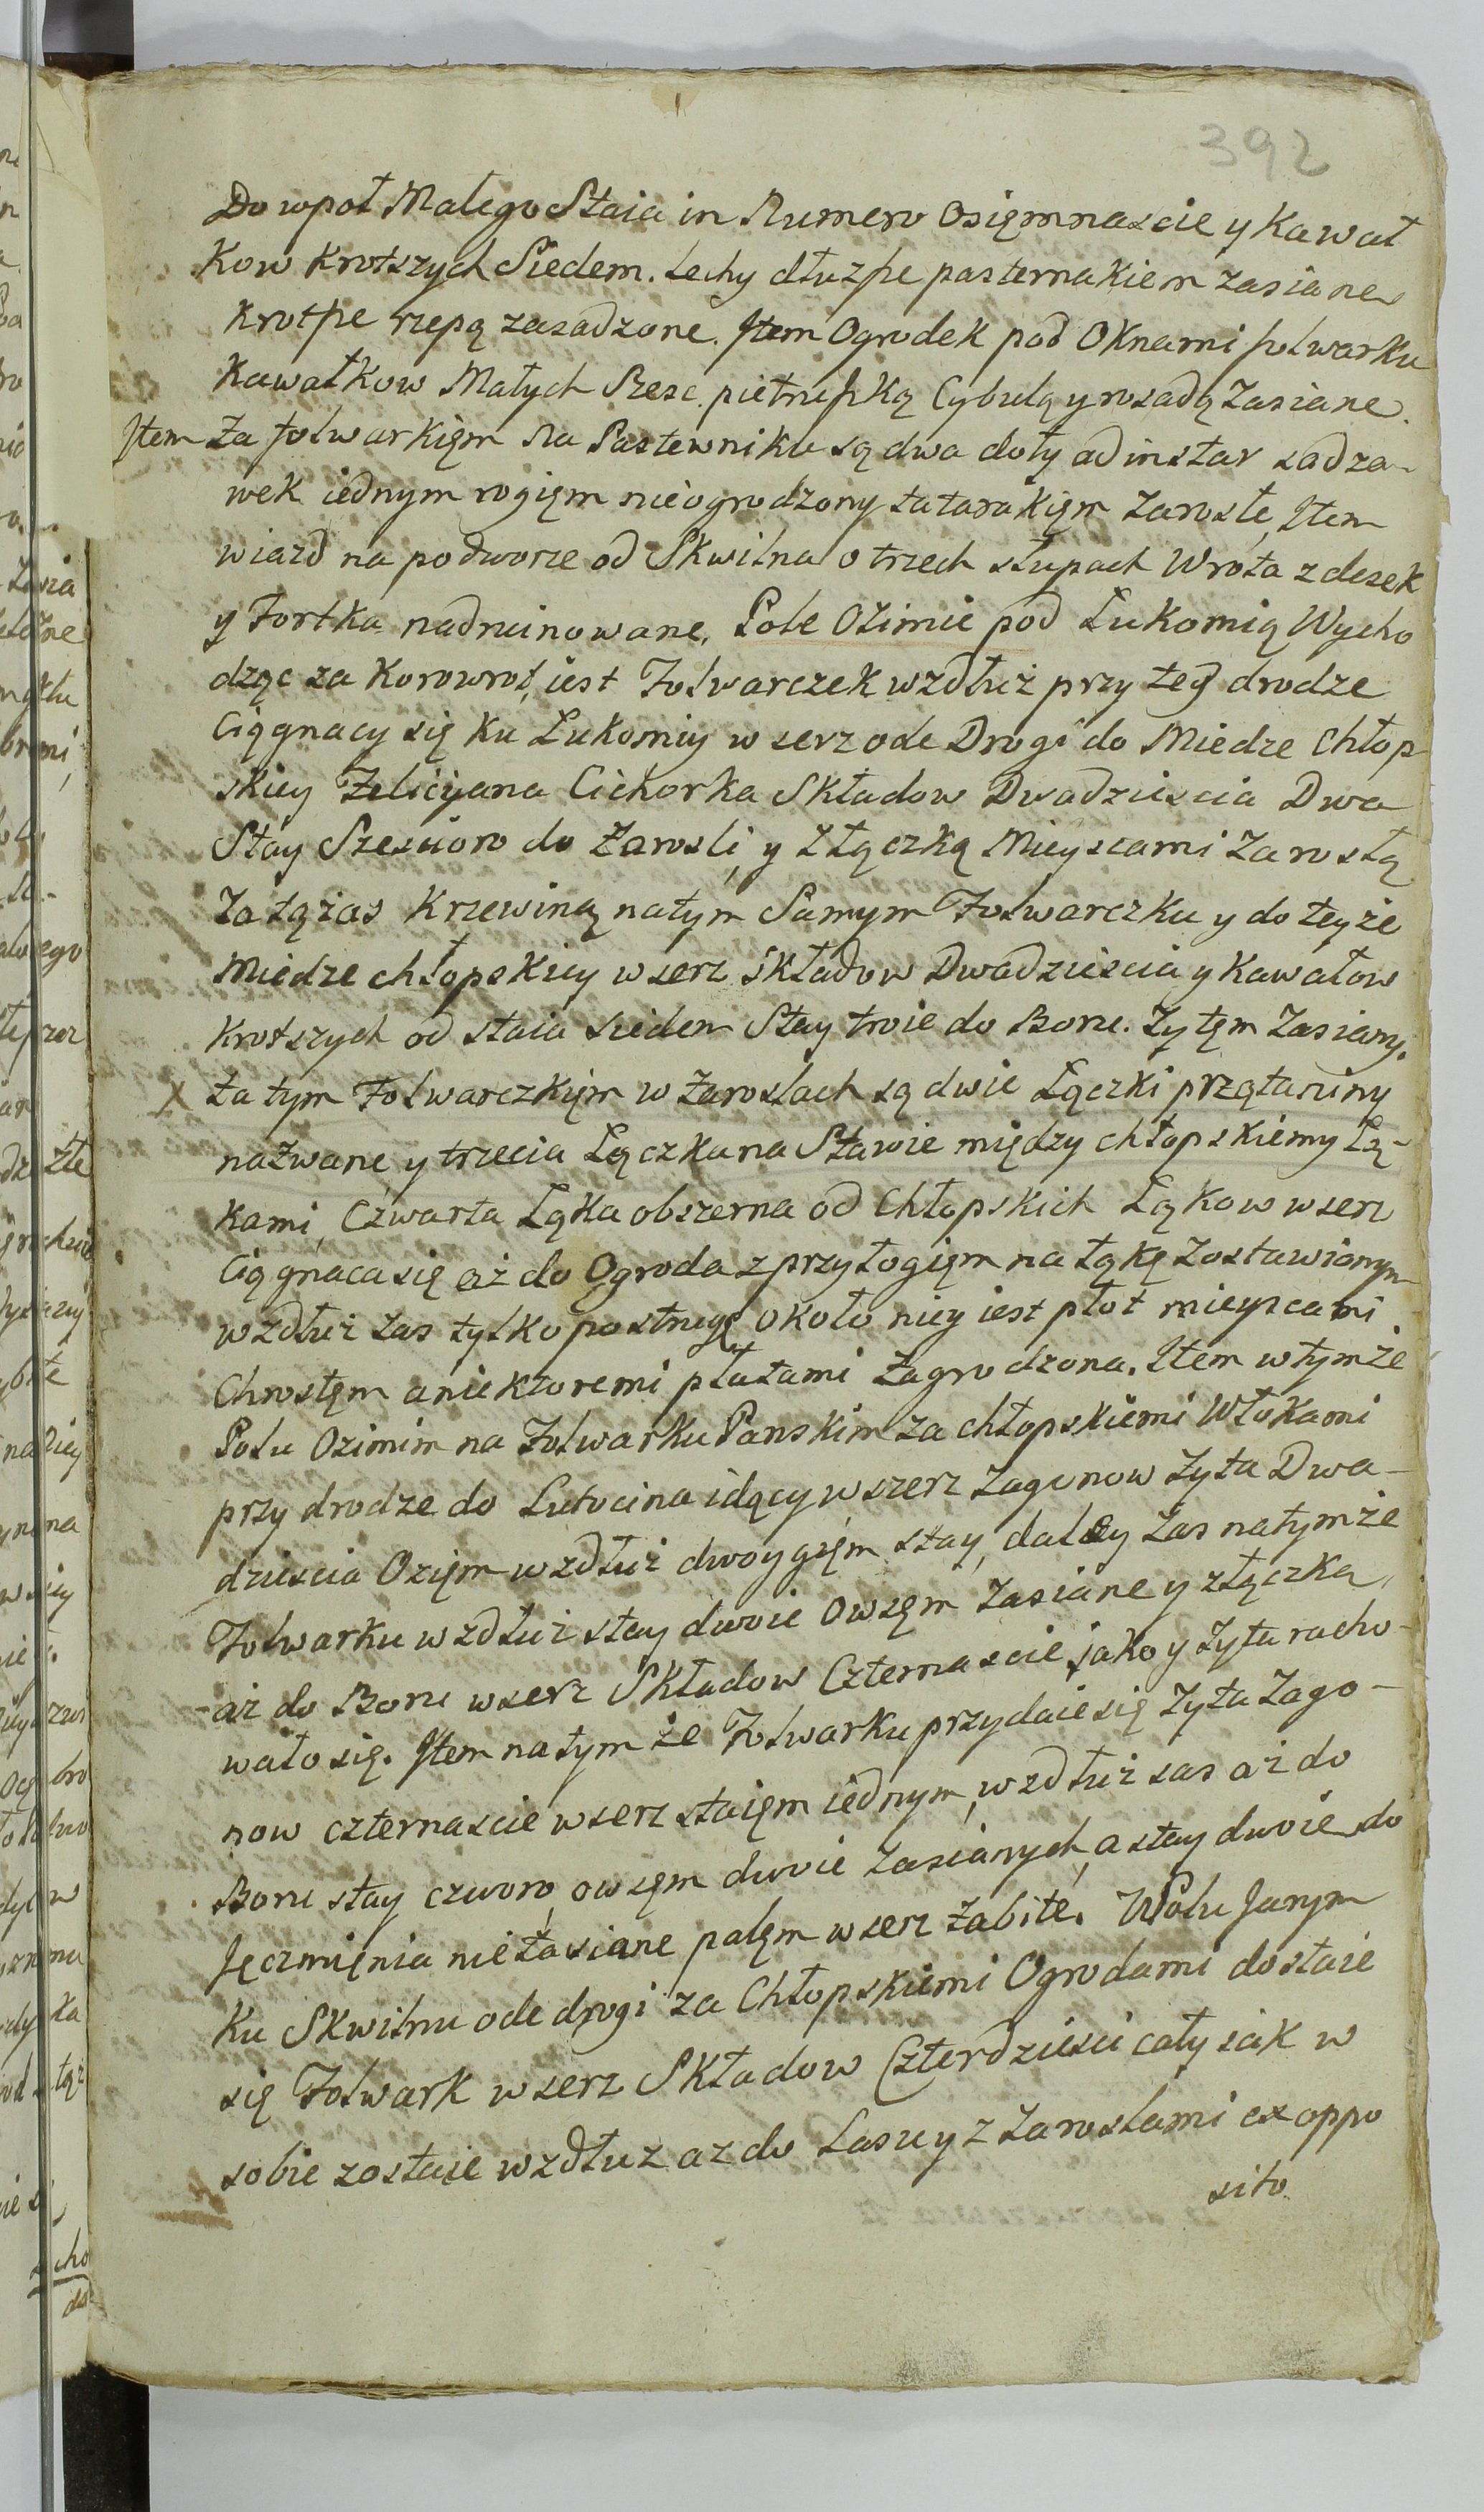 392
Do wpoł Małego Staia in Numero Osięmnascie y Kawał
Kow Krotszych Siedem. Lechy dłuzsze pasternakiem zasiane
Krotsze rzepą zasadzone. Item Ogrodek pod Oknami folwarku
Kawałkow Małych Szesc. pietruszką Cybulą y rosadą Zasiane.
Item Za folwarkięm Na Pastewniku są dwa doły ad instar sadza-
wek iednym rogięm nieogrodzony tatarakięm Zarosłe, Item
wiazd na podworze od Skwilna o trzech słupach Wrota z desek
y Fortka nadruinowane. Pole Ozimie pod Łukomią Wycho
dząc za Korowrot, iest Folwarczek wzdłuż przy tey drodze
Ciągnacy się Ku Łukomiy w serz ode Drogi do Miedze Chłop
skiey Felicyana Cichorka Składow Dwadziescia Dwa
Stay Szescioro do Zarosli, y Z Łączką Mieyscami Zarosłą
Za tą zas Krzewiną na tym Samym Folwarczku y do teyże
Miedze chłopskiey w serz Składow Dwadziescia y Kawałow
Krotszych od staia siedem Stay troie do Boru. Zytęm Zasiany.
X Za tym Folwarczkięm w Zaroslach są dwie Łączki
nazwane y trzecia Łączka na Stawie między chłopskiemy Łą-
kami, Czwarta Łąka obszerna od Chłopskich Łąkow w serz
Ciągnaca się aż do Ogroda z przyłogięm na łąkę Zostawionym
wzdłuż zas tylko po strugę około niey iest płot mieyscami
Chrostęm a niektoremi płatami Zagrodzona. Item w tymże
Polu Ozimim na Folwarku Panskim za chłopskiemi Włokami
przy drodze do Lutocina idący w szerz Zagonow Zyta Dwa-
dziescia Osięm wzdłuż dwoygięm stay, daley Zas na tymże
Folwarku wzdłuż stay dwoie Owsęm Zasiane y z łączka,
aż do Boru w serz Składow Czternascie, jako y Zytu racho-
wało się. Item na tym że Folwarku przydaie się Zyta Zago-
now czternascie w serz staięm iednym, wzdłuż sas aż do
Boru stay czworo, owsęm dwoie Zasianych, a stay dwoie do
Jęczmięnia nie Zasiane palęm w serz Zabite. W Polu Jarym
Ku Skwilnu ode drogi za Chłopskiemi Ogrodami dostaie
się Folwark w serz Składow Czterdziesci cały iak w
sobie zostaie wzdłuz az do Lasu y z Zaroslami ex oppo
sito